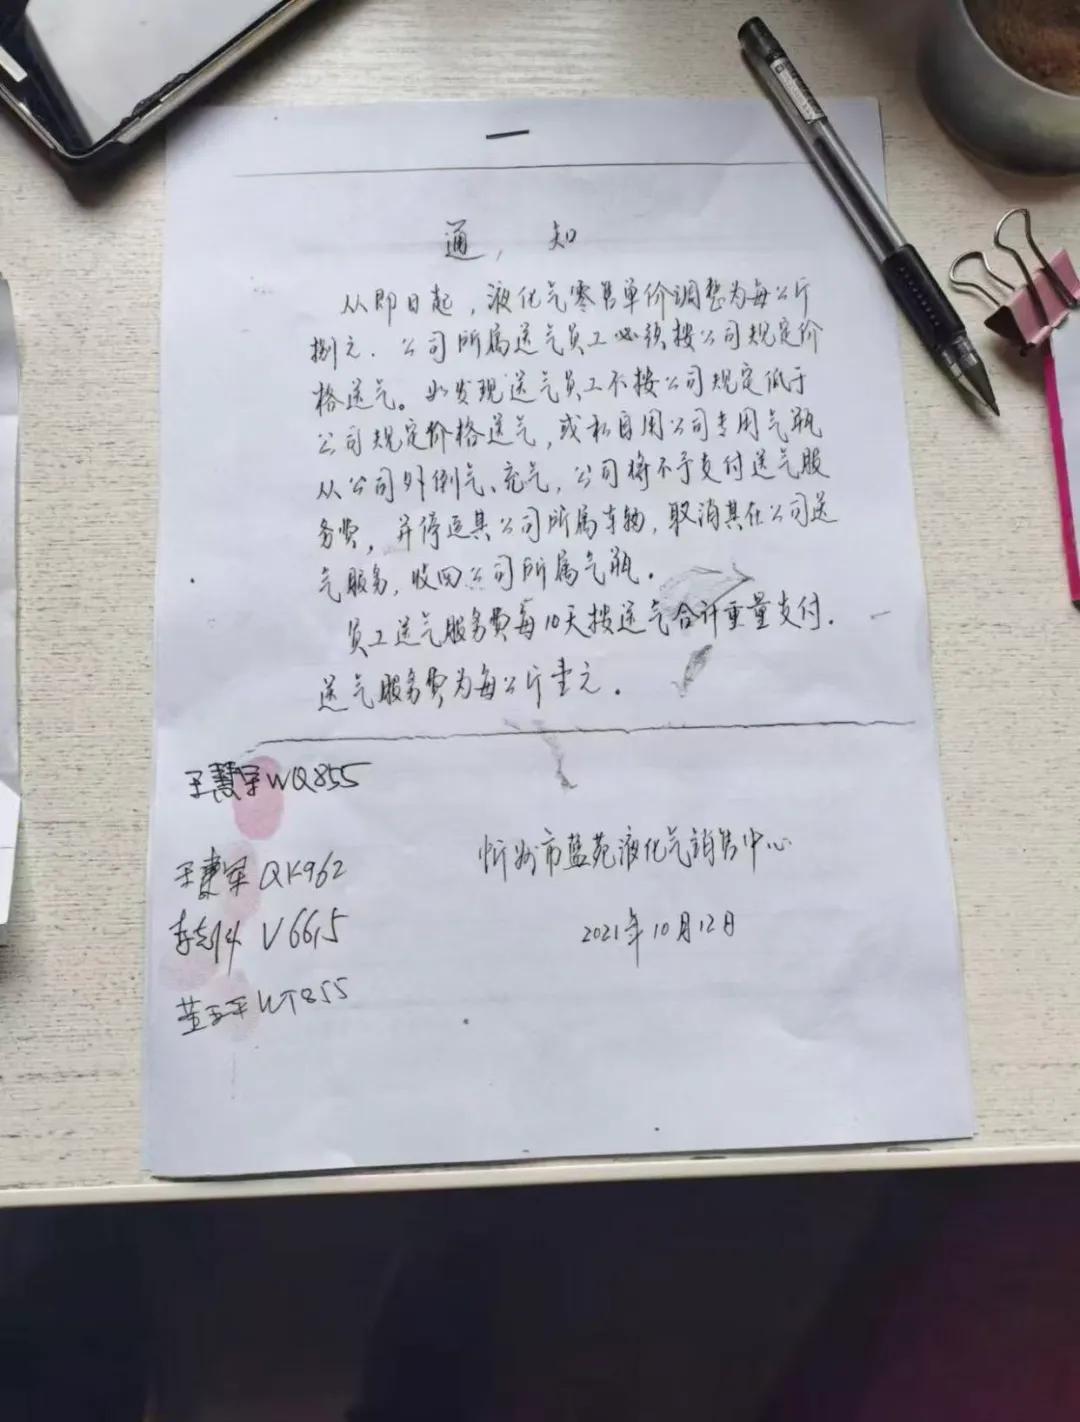 通知
从即日起，液化气零售单价调整为每公斤
捌元．公司所属送气员工必须按公司规定价
格送气。如发现送气员工不按公司规定低于
公司规定价格送气，或私自用公司专用气瓶
从公司外倒气、充气，公司将不予支付送气服
务费，并停运其公司所属车辆，取消其在公司送
气服务，收回公司所属气瓶．
员工送气服务费每10天按送气合计重量支付．
送气服务费为每公斤壹元．
王慧军WQ855
忻州市蓝苑液化气销售中心
QK962
2021年10月12日
V6615
WT855